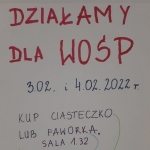 DZIAŁAMY
DLA WOŚP
3.02. i 4.02.2022 r
KUP CIASTECZKO
LUB FAWORKA
SALA 1.32